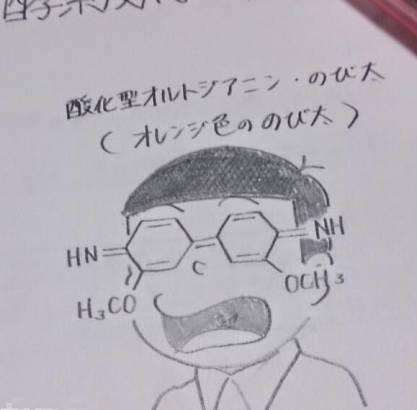 酸化型オルトジアニン・のび太
(オレンジ色ののび太)
HN
NH
H₃CO
OCH₃